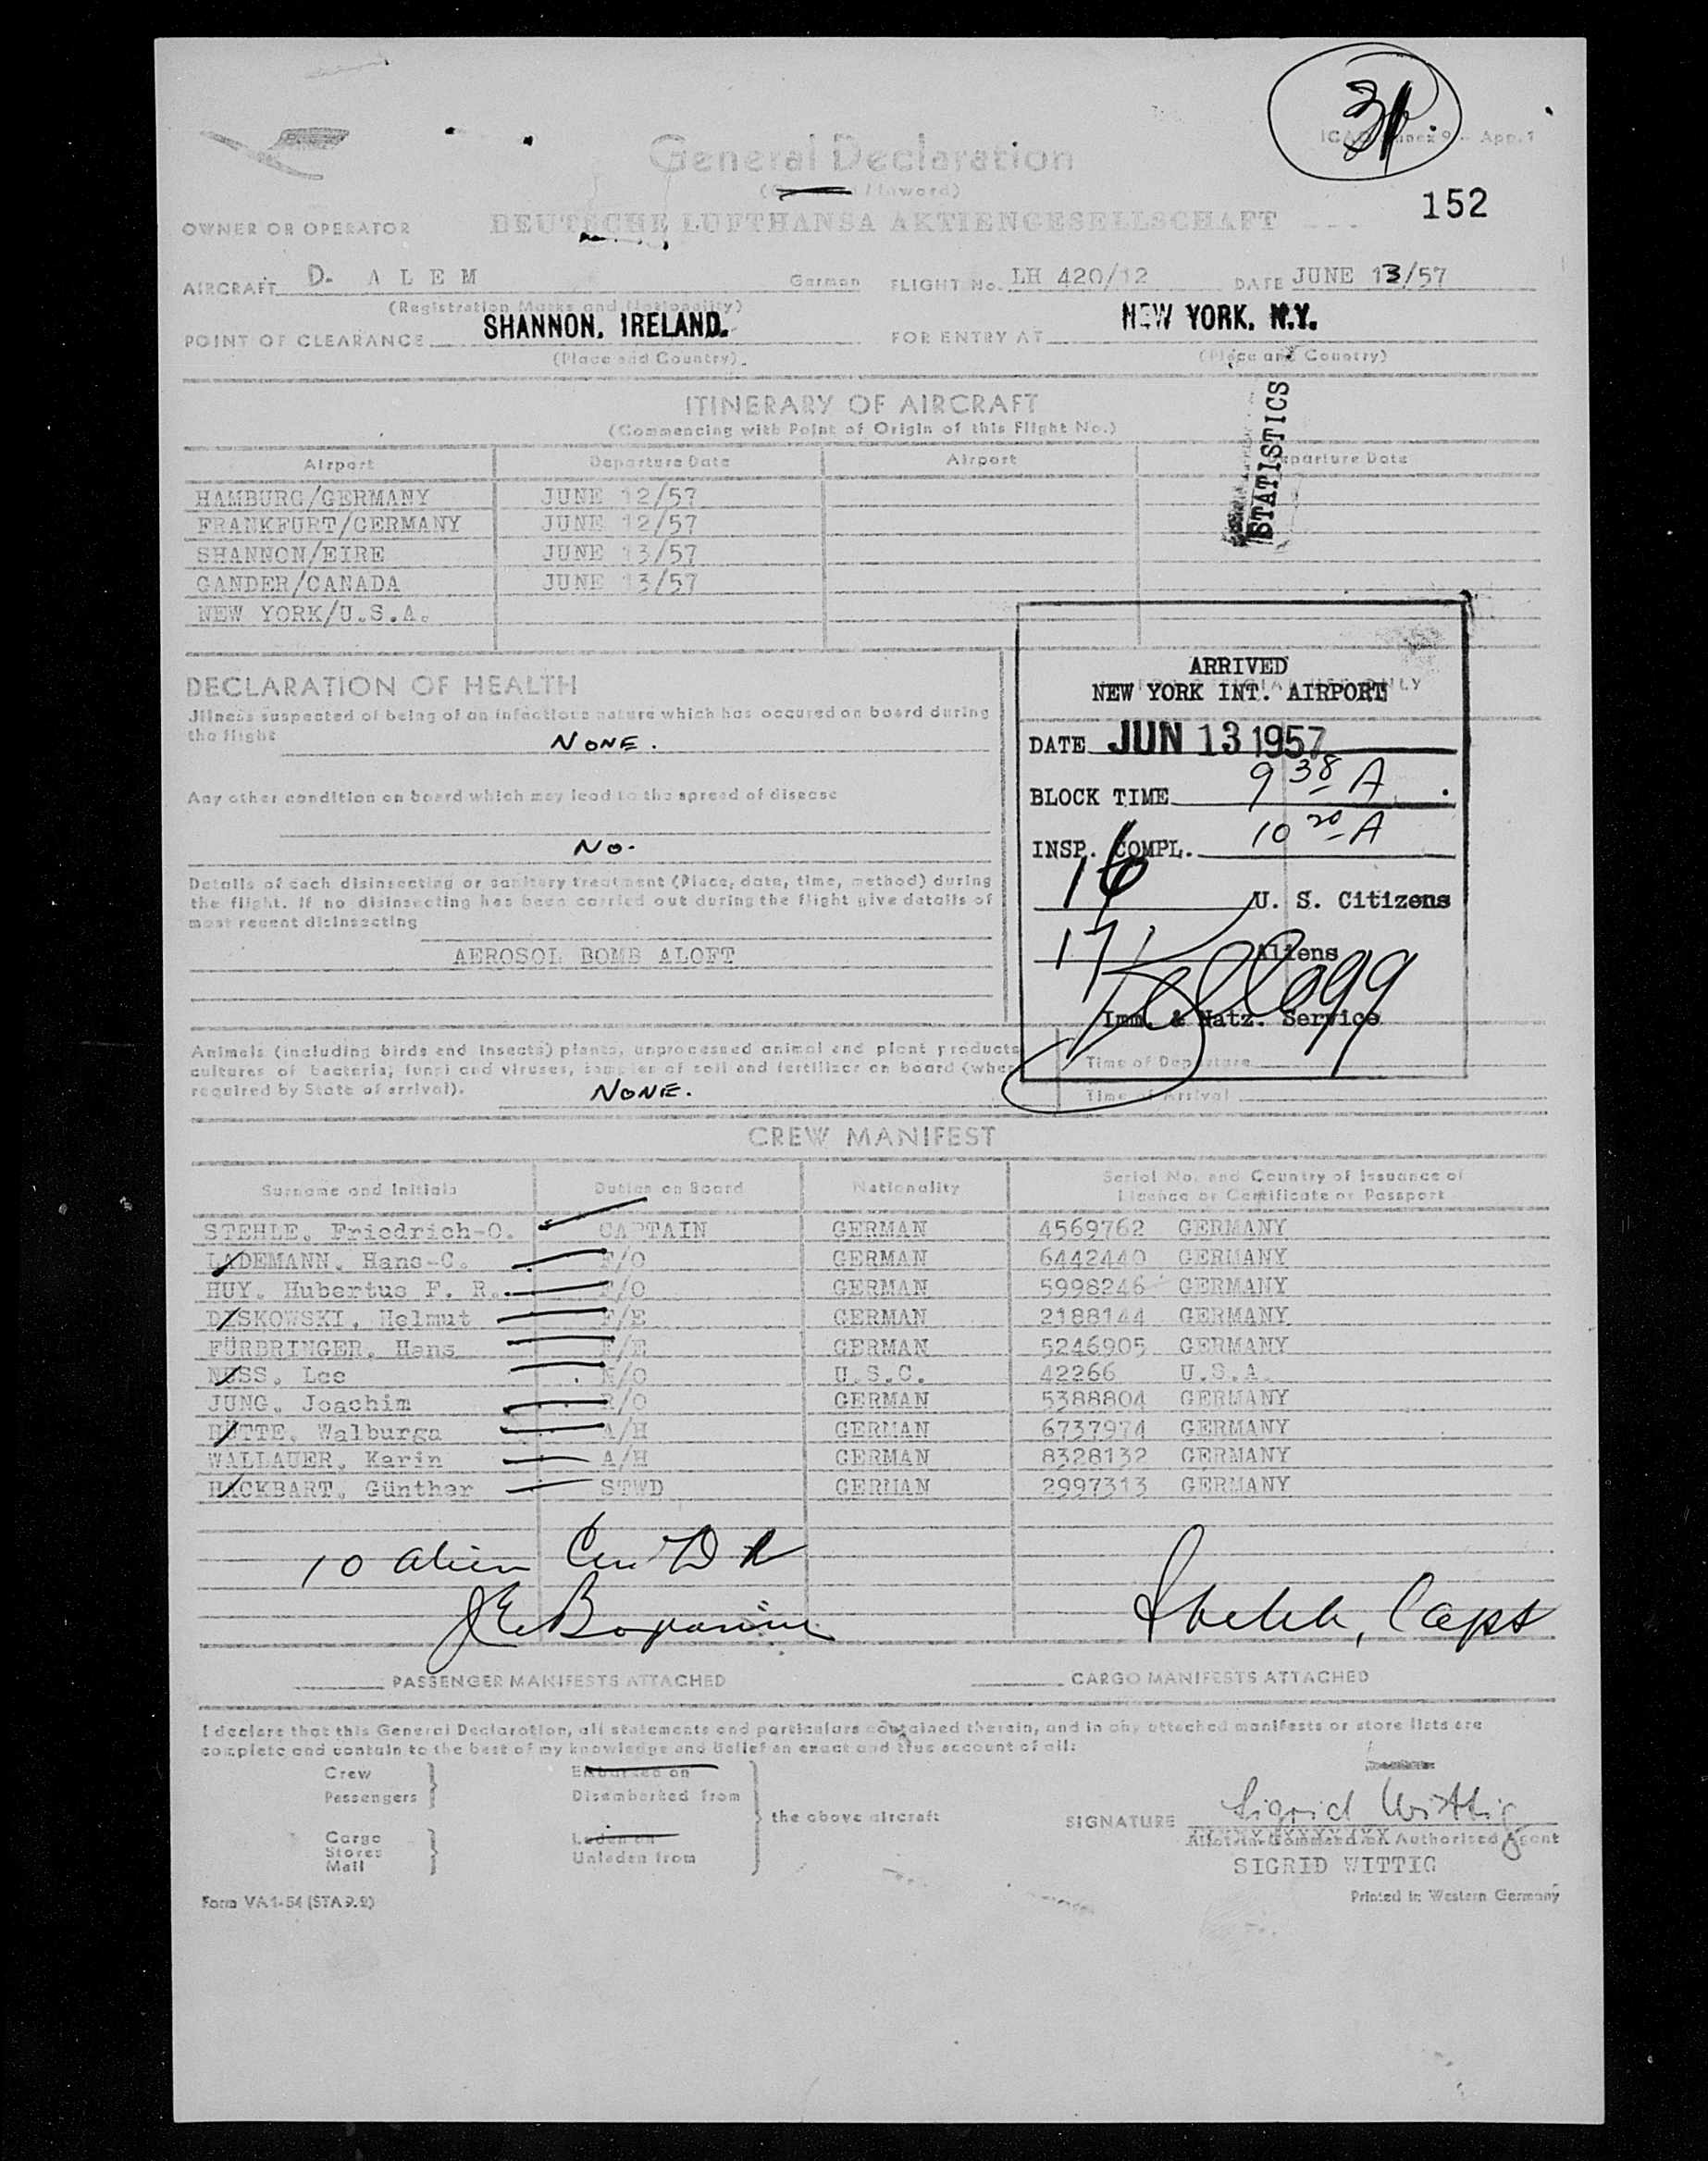 ICAO Annex 9 - App. 1
General Declaration
152
OWNER OR OPERATOR DEUTSCHE LUFTHANSA AKTIENGESELLSCHAFT
AIRCRAFT D- A L E M German FLIGHT No. LH 420/12 DATE JUNE 13/57
(Registration Marks and Nationality)
POINT OF CLEARANCE SHANNON, IRELAND. FOR ENTRY AT NEW YORK, N.Y.
(Place and Country) (Place and Country)
STATISTICS
ITINERARY OF AIRCRAFT
(Commencing with Point of Origin of this Flight No.)
Airport Departure Date Airport Departure Date
HAMBURG/GERMANY JUNE 12/57
FRANKFURT/GERMANY JUNE 12/57
SHANNON/EIRE JUNE 13/57
GANDER/CANADA JUNE 13/57
NEW YORK/U.S.A.
DECLARATION OF HEALTH
Illness suspected of being of an infectious nature which has occured on board during
the flight NONE.
Any other condition on board which may lead to the spread of disease
NO.
Details of each disinsecting or sanitary treatment (Place, date, time, method) during
the flight. If no disinsecting has been carried out during the flight give details of
most recent disinsecting
AEROSOL BOMB ALOFT
ARRIVED
NEW YORK INT. AIRPORT
DATE JUN 13 1957
BLOCK TIME 9 38 A
INSP. COMPL. 10 20 A
16 U. S. Citizens
17 Aliens
Kellogg
Imm. & Natz. Service
Animals (including birds and insects) plants, unprocessed animal and plant products
cultures of bacteria, fungi and viruses, samples of soil and fertilizer on board (when
required by State of arrival). NONE.
Time of Departure
Time of Arrival
CREW MANIFEST
Surname and Initials Duties on Board Nationality Serial No. and Country of Issuance of
Licence or Certificate or Passport
STEHLE, Friedrich-O. CAPTAIN GERMAN 4569762 GERMANY
LADEMANN, Hans-C. F/O GERMAN 6442440 GERMANY
HUY, Hubertus F. R. F/O GERMAN 5998246 GERMANY
DYSKOWSKI, Helmut F/E GERMAN 2188144 GERMANY
FÜRBRINGER, Hans F/E GERMAN 5246905 GERMANY
NUSS, Lee N/O U.S.C. 42266 U.S.A.
JUNG, Joachim R/O GERMAN 5388804 GERMANY
HÜTTE, Walburga A/H GERMAN 6737974 GERMANY
WALLAUER, Karin A/H GERMAN 8328132 GERMANY
HACKBART, Günther STWD GERMAN 2997313 GERMANY
10 alien
Capt
PASSENGER MANIFESTS ATTACHED CARGO MANIFESTS ATTACHED
I declare that this General Declaration, all statements and particulars contained therein, and in any attached manifests or store lists are
complete and contain to the best of my knowledge and belief an exact and true account of all:
Crew Embarked on
Passengers Disembarked from
the above aircraft
Cargo Laden on
Stores
Mail Unladen from
SIGNATURE Sigrid Wittig
Authorised Agent
SIGRID WITTIG
Form VA 1-54 (STA 9.2) Printed in Western Germany